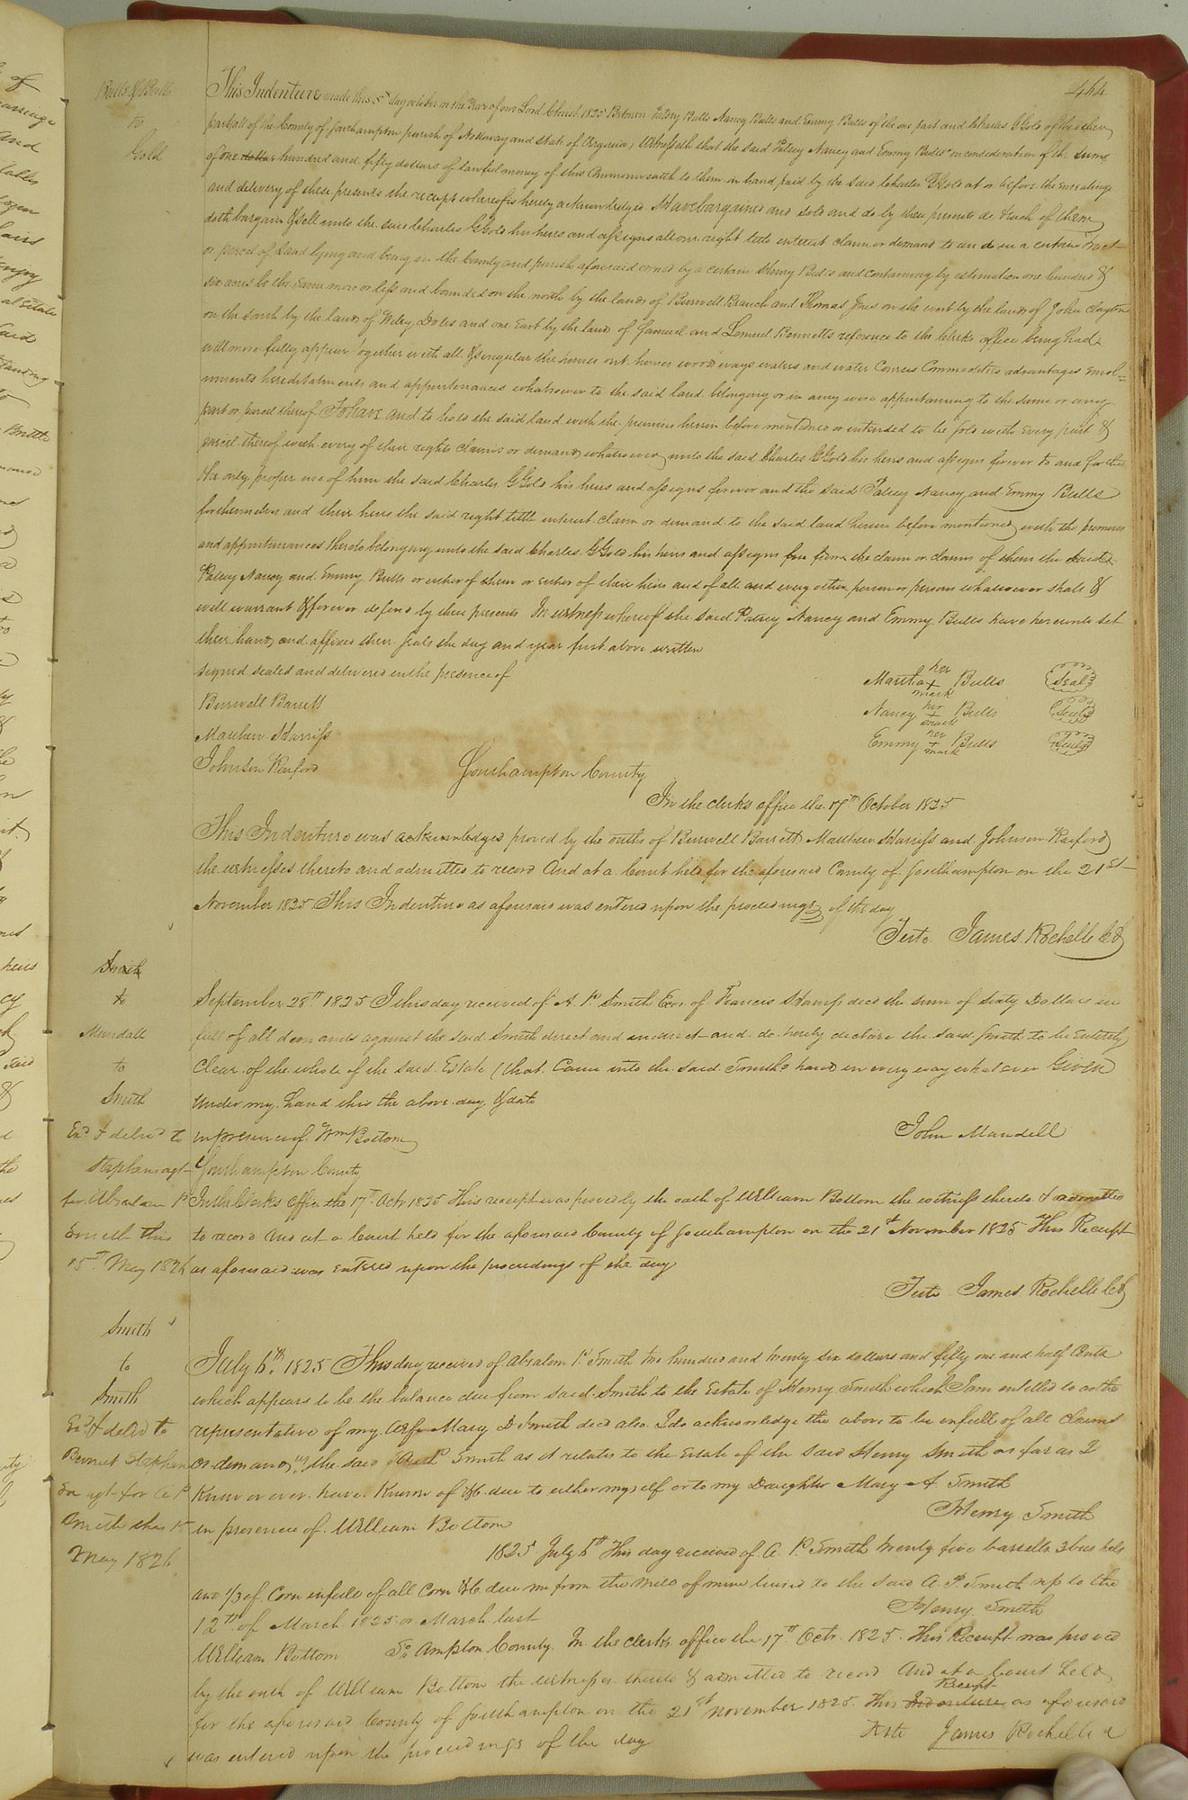 464
Butts & Butts
to
Gold
This Indenture made this 5th day October in the Year of our Lord Christ 1825 Between Patsey Butts Nancy Butts and Emmy Butts of the one part and Charles G Gold of the other
part all of the County of Southampton parish of Nottoway and State of Virginia, Witnesseth that the said Patsey Nancy and Emmy Butts in consideration of the sume
of one dollar hundred and fifty dollars of lawful money of this Commonwealth to them in hand paid by the said Charles G Gold at or before the ensealing
and delivery of these presents the receipt whereof is hereby acknowledged Have bargained and sold and do by these presents do Each of them
doth bargain & sell unto the said Charles G Gold his heirs and assigns all our right title interest claim or demand to and in a certain Tract
or parcel of Land lying and being in the County and parish aforesaid owned by a certain Henry Butts and containing by estimation one hundred &
six acres be the same more or less and bounded on the north by the lands of Burwell Branch and Thomas on the west by the lands of John Clayton
on the South by the lands of Wiley Doles and one East by the land of Samuel and Lemuel Bennetts reference to the Clerks office being had
will more fully appear together with all & singular the houses out houses woods ways waters and water Courses Commodities advantages Emol=
uments hereditatments and appurtenances whatsoever to the said land belonging or in any wise appurtanning to the same or any
part or parcel thereof To have and to hold the said land with the premises herein before mentioned or intended to be sold with Every part &
parcel thereof with every of their rights claims or demands whatsoever unto the said Charles G Gold his heirs and assigns forever to and for the
the only proper use of him the said Charles G Gold his heirs and assigns forever and the said Patsey Nancy and Emmy Butts
for themselves and their heirs the said right title interest claim or demand to the said land herein before mentioned with the premises
and appurtenances thereto belonging unto the said Charles G Gold his heirs and assigns free from the claim or claims of them the said
Patsey Nancy and Emmy Butts or either of them or either of their heirs and of all and every other person or persons whatsoever shall &
will warrant & forever defend by these presents In witness whereof the said Patsey Nancy and Emmy Butts have hereunto set
their hands and affixed their seals the day and year first above written
signed sealed and delivered in the presence of
Martha her + mark Butts Seal
Burwell Barrett
Nancy her + mark Butts Seal
Matthew Harriss
Emmy her + mark Butts Seal
Johnson Rayford
Southampton County
In the clerks office the 17th October 1825
This Indenture was acknowledged proved by the oaths of Burwell Barrett Matthew Harriss and Johnson Rayford
the witnesses thereto and admitted to record And at a Court held for the aforesaid County of Southampton on the 21st
November 1825 This Indenture as aforesaid was entered upon the proceedings of the day
Teste James Rochelle Ck
Smith
to
Mundall
to
Smith
Exd & delivd to
Stephens agt
for Abraham P
Smith this
15th May 1826
September 28th 1825 I this day received of A. P. Smith Exor of Francis Stamp decd the sum of Sixty Dollars in
full of all demands against the said Smith direct and indirect and do hereby declare the said Smith to be Entirely
Clear of the whole of the said Estate (that Came into the said Smiths hand in every way what ever Given
Under my hand this the above day & date
In presence of Wm Bottom
John Mundell
Southampton County
In the Clerks Office the 17th Octr 1825 This receipt was proved by the oath of William Bottom the witness thereto & admitted
to record And at a Court held for the aforesaid County of Southampton on the 21st November 1825 This Receipt
as aforesaid was entered upon the proceedings of the day
Teste James Rochelle Ck
Smith
to
Smith
Exd & delivd to
Bennet Stephen
son agt for A P
Smith this 15
May 1826
July 6th 1825 This day received of Abraham P Smith two hundred and twenty six dollars and fifty one and half Cents
which appears to be the balance due from said Smith to the Estate of Henry Smith which I am entitled to as the
representative of my wife Mary D Smith decd also I do acknowledge the above to be in full of all claims
or demands, the said A P Smith as it relates to the Estate of the said Henry Smith as far as I
know or ever have known of &c due to either myself or to my Daughter Mary A Smith
in presence of William Bottom
Henry Smith
1825 July 6th This day received of A. P. Smith twenty five barrells 3 bus hels
and 1/3 of Corn in full of all Corn &c due me from the Mill of mine leased to the said A. P. Smith up to the
12th of March 1825 or March last
Henry Smith
William Bottom So Ampton County. In the clerks office the 17th Octr 1825. This Receipt was proved
by the oath of William Bottom the witness thereto & admitted to record And at a Court held
for the aforesaid County of Southampton on the 21st november 1825 This Indenture Receipt as aforesaid
was entered upon the proceedings of the day
Teste James Rochelle C